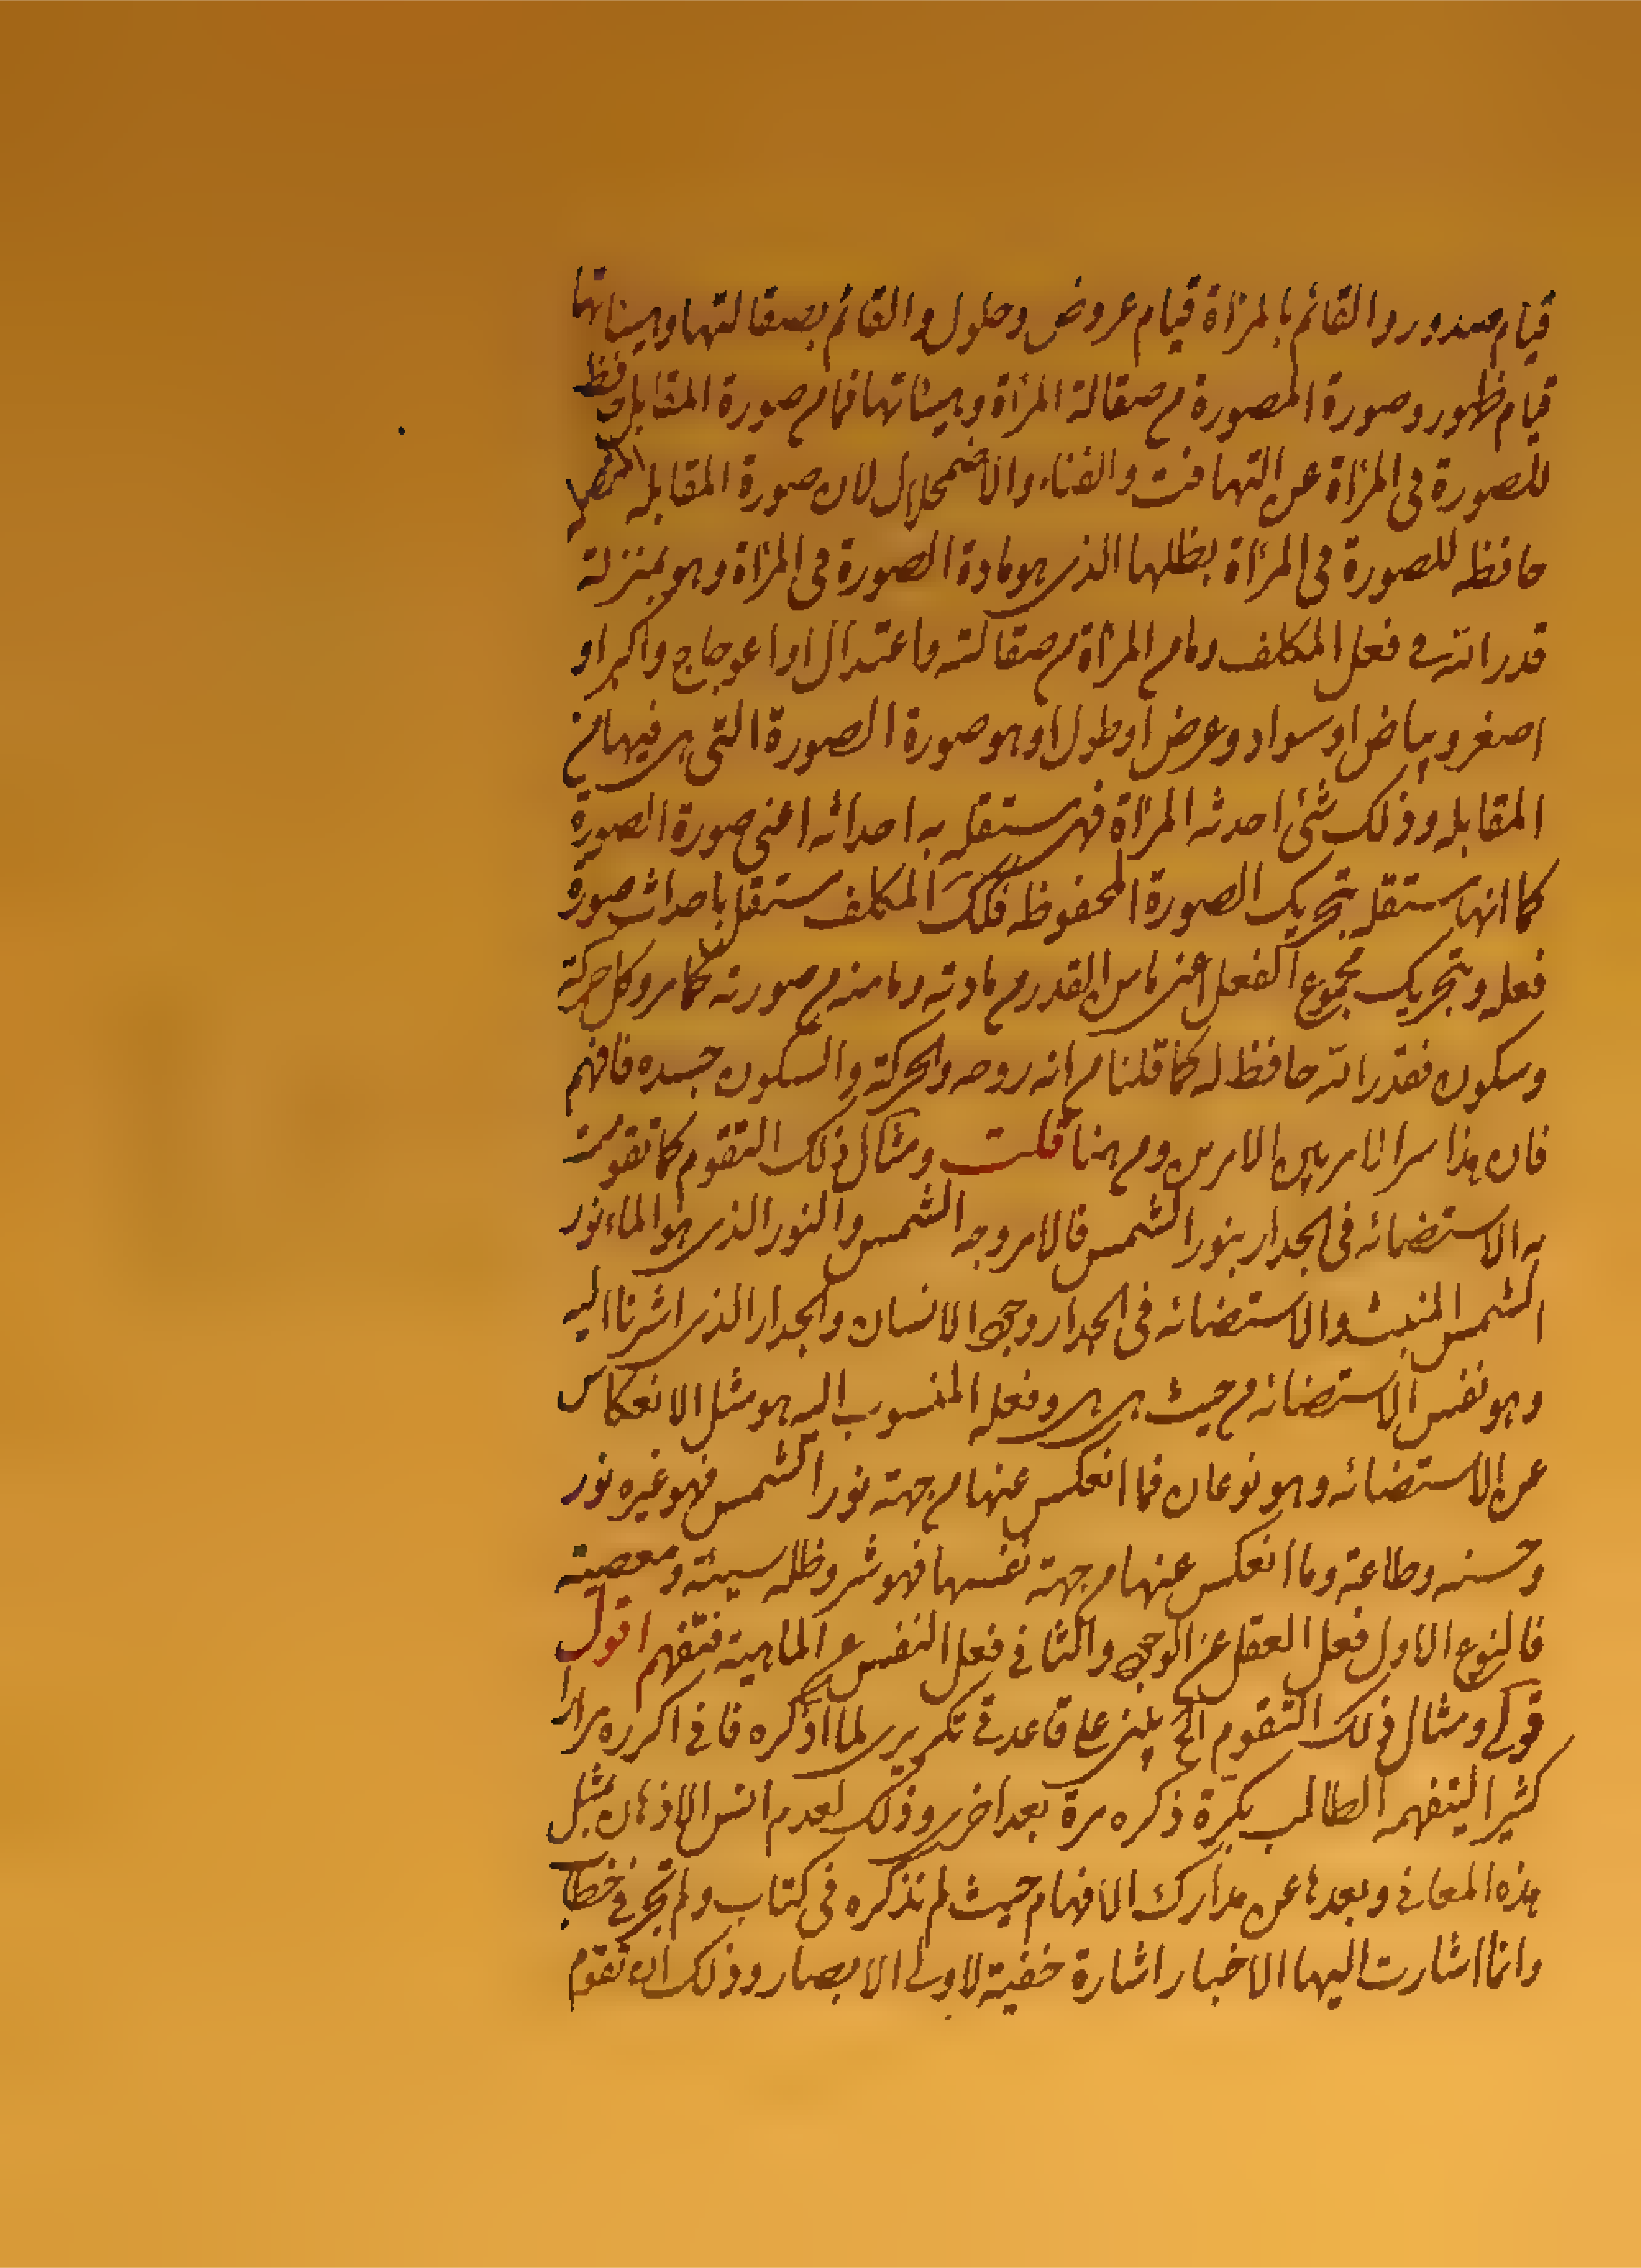 قيام صدور والقائم بالمرآة قيام عروض وحلول والقائم بصقالتها وهيئاتها
قيام ظهور وصورة المصورة من صقالة المرآة وهيئاتها فما من صورة المقابل حافظ
للصورة في المرآة عن التهافت والفناء والاضمحلال لان صورة المقابلة المتصلة
حافظه للصورة في المرآة بظلها الذي هو مادة الصورة في المرآة وهو بمنزلة
قدر الله في فعل المكلف وما من المرآة من صقالته واعتدال او اعوجاج واكبر او
اصغر وبياض او سواد وعرض او طول او هو صورة الصورة التي هي فيها من
المقابله وذلك شئ احدثه المرآة فهي مستقلة به احداثه اعني صورة الصورة
كما انها مستقلة بتحريك الصورة المحفوظه فكك المكلف مستقل باحداث صورة
فعله وبتحريك مجموع الفعل اعني ما من القدر من مادته وما منه من صورته كما مر وكل حركة
وسكون فقدر الله حافظ له كما قلنا من انه روحه والحركة والسكون جسده فافهم
فان هذا سر الامر بين الامرين ومن هنا قلت ومثال ذلك التقوم كما تقومت
به الاستضائه في الجدار بنور الشمس فالامر وجه الشمس والنور الذي هو الماء نور
الشمس المنبث والاستضائه في الجدار وجود الانسان والجدار الذي اشرنا اليه
وهو نفس الاستضائه من حيث هي هي وفعله المنسوب اليه هو مثل الانعكاس
عن الاستضائه وهو نوعان فما انعكس عنها من جهة نور الشمس فهو خير ونور
وحسنه وطاعة وما انعكس عنها من جهة نفسها فهو شر وظلمه سيئة ومعصية
فالنوع الاول فعل العقل عن الوجود والثاني فعل النفس عن الماهية فتفهم اقول
قولي ومثال ذلك التقوم الخ يبني على قاعدتي تكريري لما اذكره فاني اكرره مرارا
كثيرا ليتفهمه الطالب بكثرة ذكره مرة بعد اخرى وذلك لعدم انس الاذهان بمثل
هذه المعاني وبعدها عن مدارك الافهام حيث لم تذكره في كتاب ولم تجر في خطاب
وانما اشارت اليها الاخبار اشارة خفية لاولي الابصار وذلك ان تقوم